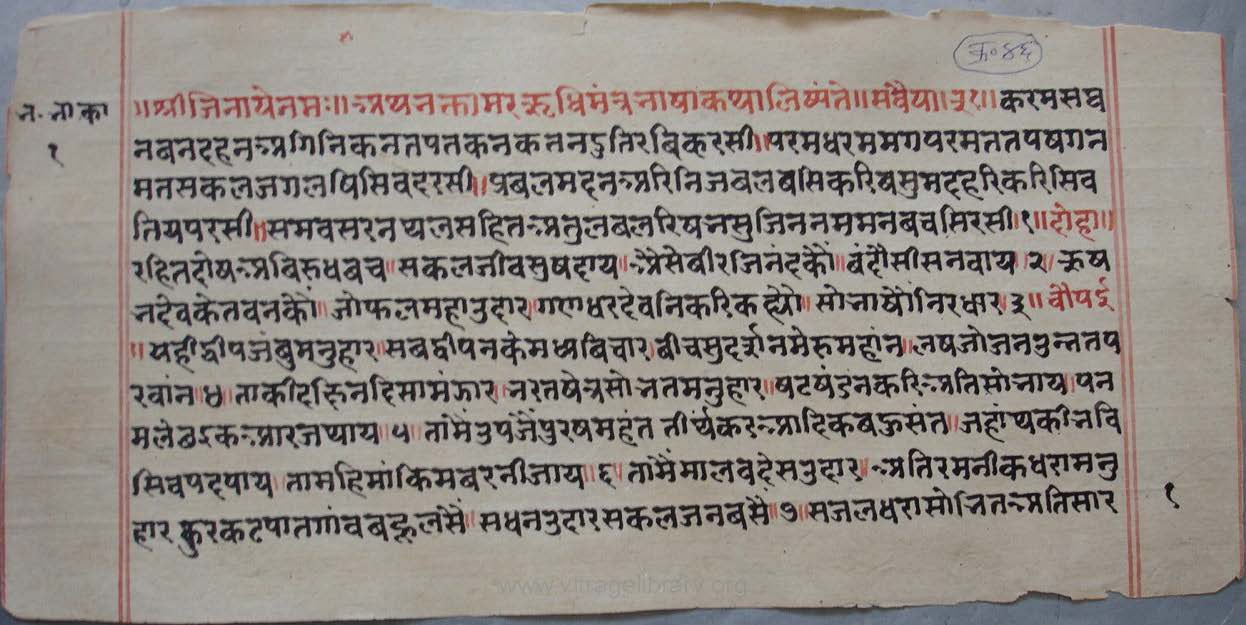 क्र॰ ४६
भ॰ भा का
॥श्रीजिनायेनमः॥अथभक्तामरऋधिमंत्रभाषाकथालिष्यंते॥सवैया॥३१॥करमसघ
१
नबनदहनअगिनिकनतपतकनकतनदुतिरबिकरसी॥परमधरममगपरमततपषगन
मतसकलजगलषिसिवदरसी॥प्रबलमदनअरिनिजबलबसिकरिबसुमदहरिकरिसिव
तियपरसी॥समवसरनथलसहितअतुलबलरिषभसुजिननममनबचसिरसी।१॥दोहा॥
रहितदोषअबिरुधबच॥सकलजीवसुषदाय॥अैसेबीरजिनंदकौं॥बंदौंसीसनवाय।२।ऋष
भदेवकेतवनकौं॥जोफलमहाउदार।गणधरदेवनिकरिकह्यो॥सोभाषौंनिरधार।३॥चौपई
॥यहीद्वीपजंबुमनुहार॥सबद्वीपनकेमध्यबिचार।बीचसुदर्शनमेरुमहांन॥लषजोजनउन्नतप
रवांन॥४॥ताकीदछिनदिसामंझार।भरतषेत्रसोभतमनुहार॥षटषंडनकरिअतिसोभाय।पन
मलेछइकआरजथाय॥५॥तांमैंउपजैंपुरषमहंत तीर्थंकरआदिकबहुसंत॥जहांथकीभवि
सिवपदपाय।तामहिमांकिमबरनीजाय॥६॥तामैंमालवदेसउदार।अतिरमनीकधरामनु
हार कुरकटपातगांवबहुलसैं॥सधनउदारसकलजनबसैं॥७॥सजलधरासोभितअतिसार
१
www.vitragelibrary.org